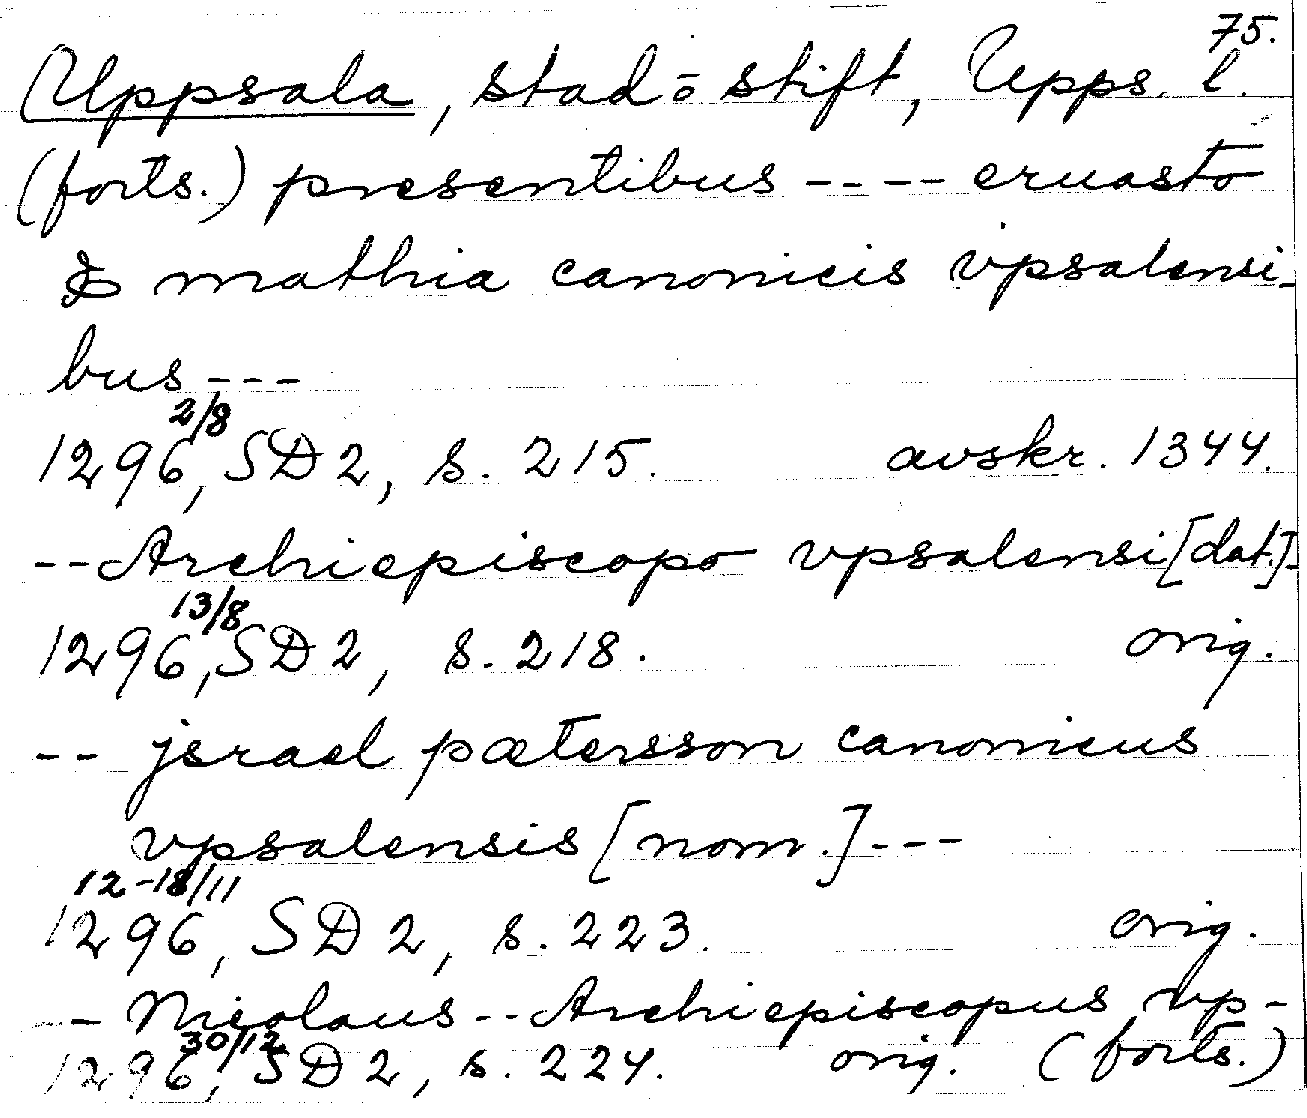 75.
Uppsala, stad o stift, Upps. l.
(forts.) presentibus ---- eruasto
& mathia canonicis vpsalensi-
bus ---
1296 2/8, SD 2, s. 215. avskr. 1344.
-- Archiepiscopo vpsalensi [dat.]-
1296 13/8, SD 2, s. 218. orig.
-- jsrael pætersson canonicus
vpsalensis [nom.] ---
1296 12-18/11, SD 2, s. 223. orig.
-- Nicolaus -- Archiepiscopus vp-
1296 30/12, SD 2, s. 224. orig. (forts.)